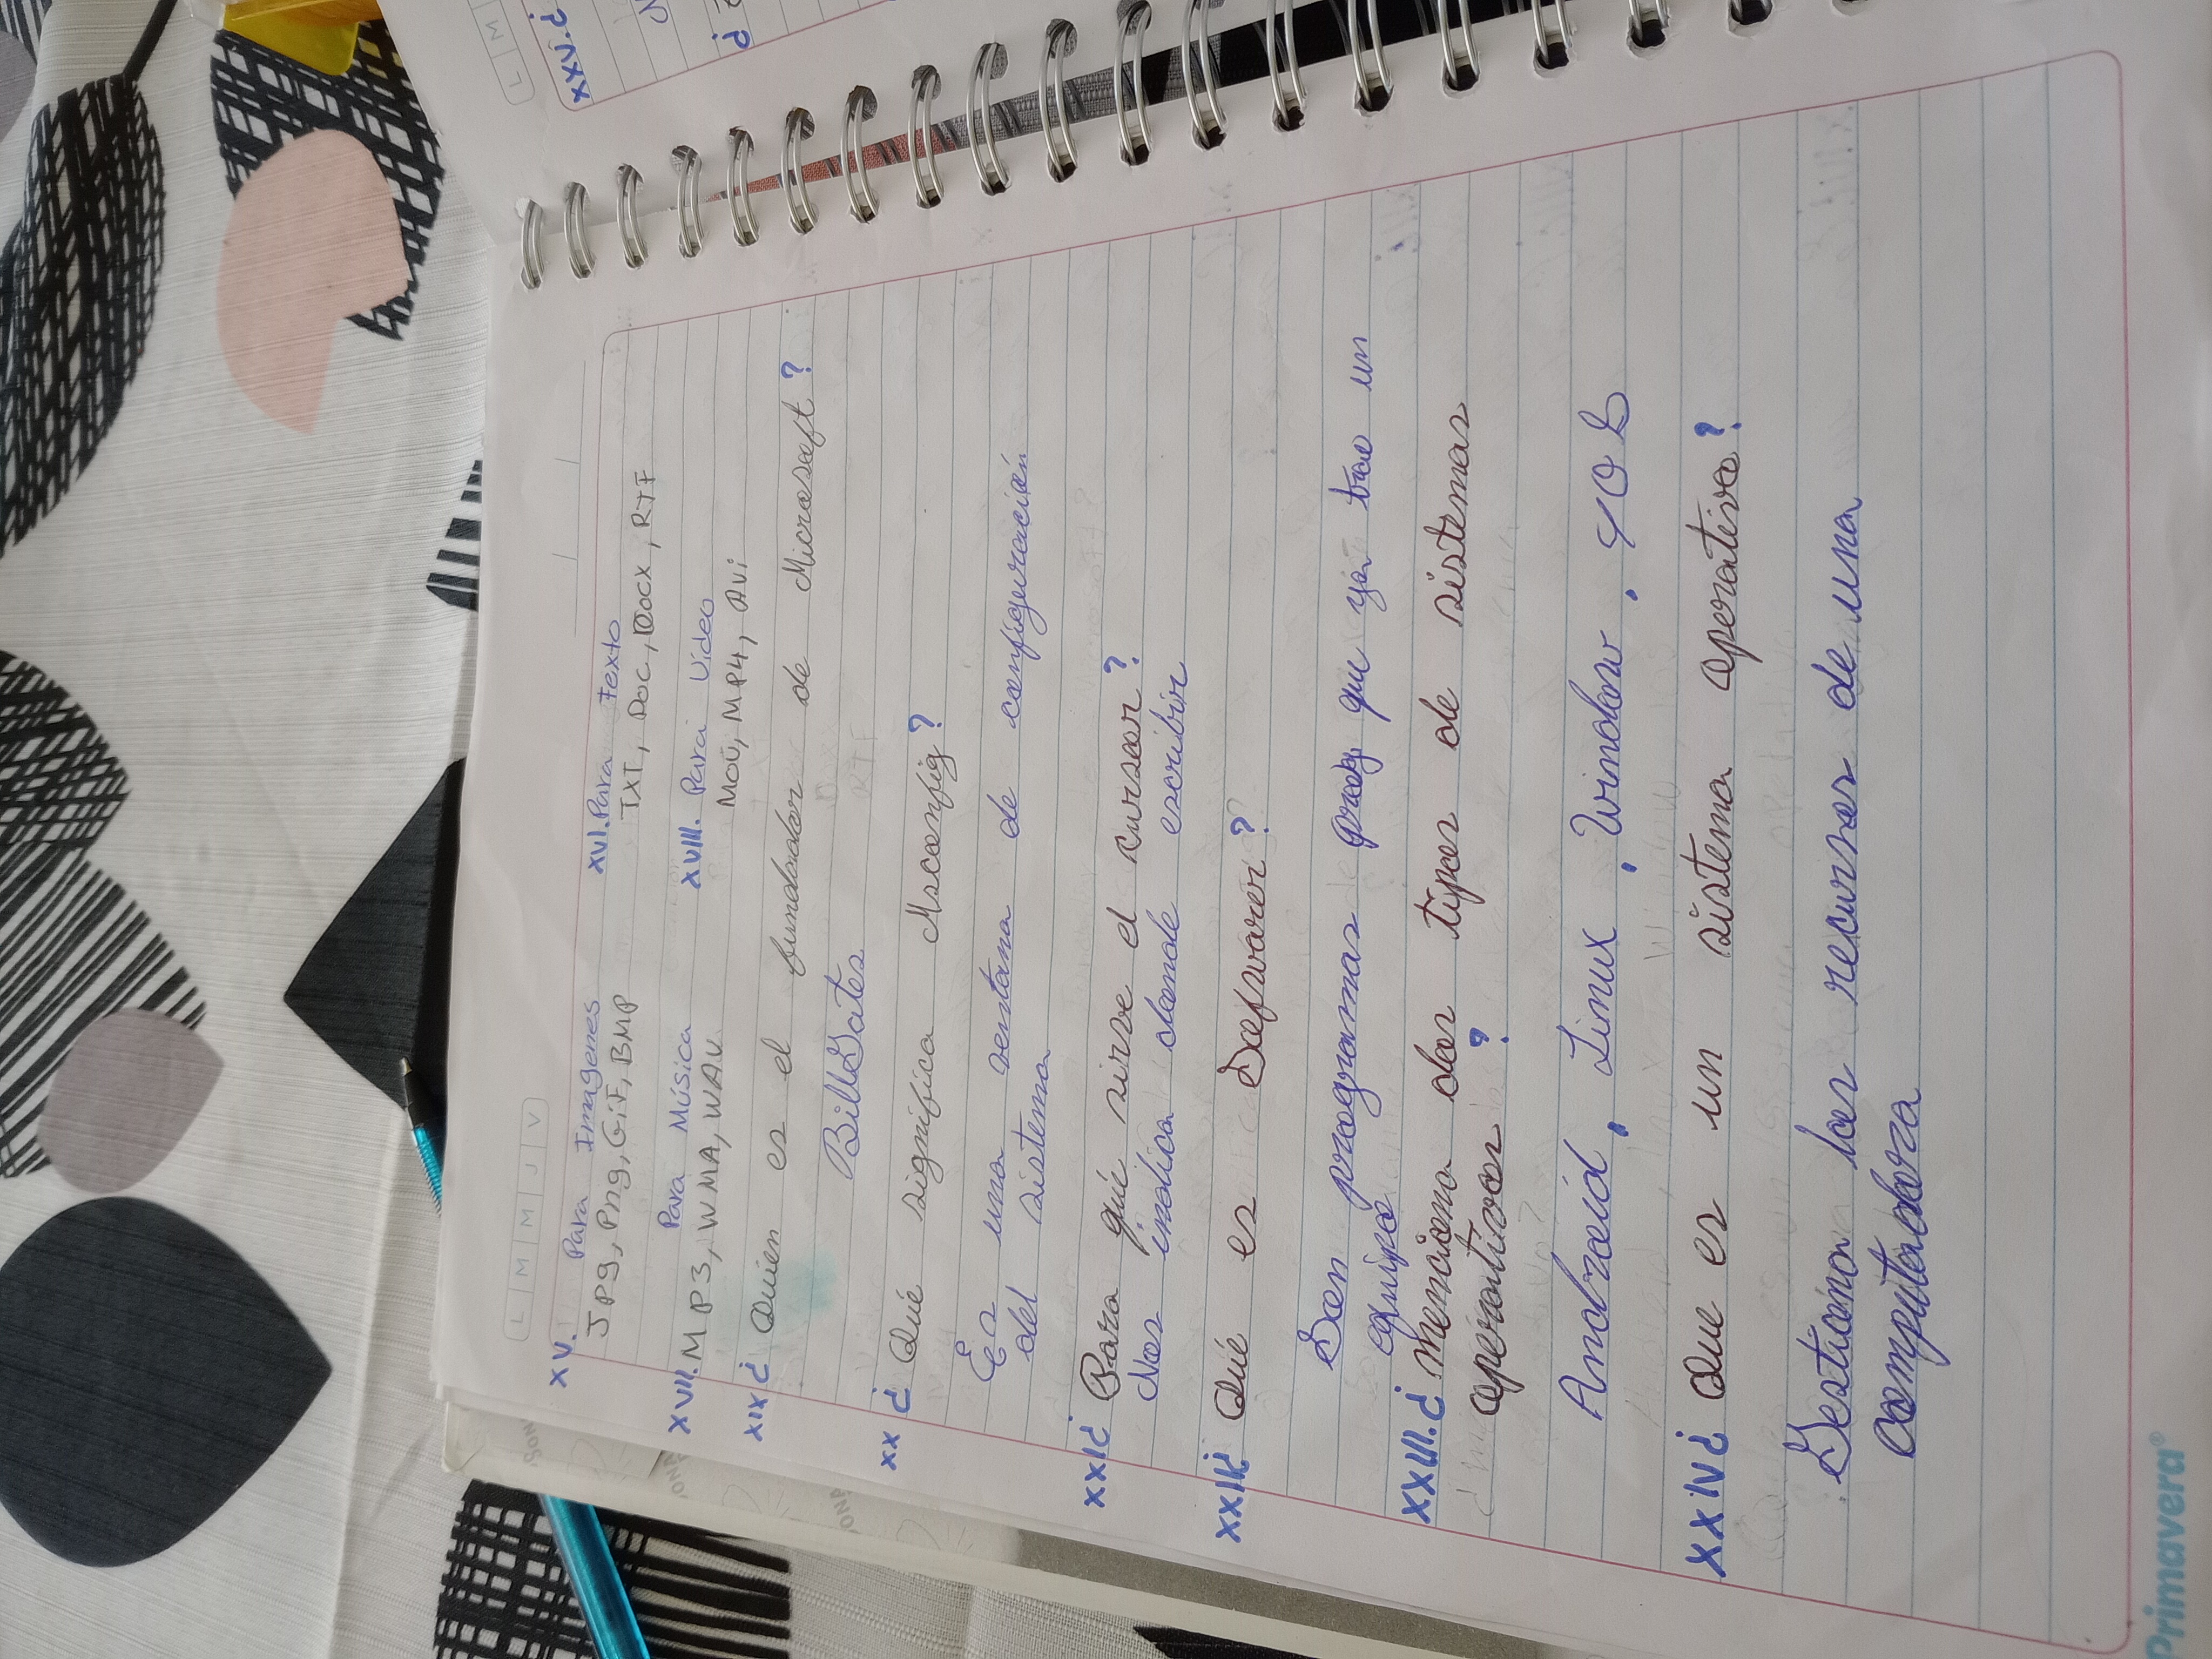 L M M J V
XV. Para Imagenes
XVI. Para Texto
JPg, Png, GiF, BMP
TXT, Doc, Docx, RTF
XVII. Para Música
XVIII. Para Video
MP3, WMA, WAV
MOV, MP4, AVi
XIX ¿ Quién es el fundador de Microsoft ?
Bill Gates
XX ¿ Qué significa Msconfig ?
Es una ventana de configuración
del sistema
XXI ¿ Para qué sirve el cursor ?
Nos indica donde escribir
XXII ¿ Qué es Sofwarer ?
Son programas que ya trae un
equipo
XXIII. ¿ menciona dos tipos de sistemas
operativos ?
Android, Linux, Window,
XXIV ¿ Que es un sistema operativo ?
Gestiona los recursos de una
computadora
Primavera®
L M
XXVI. ¿
¿